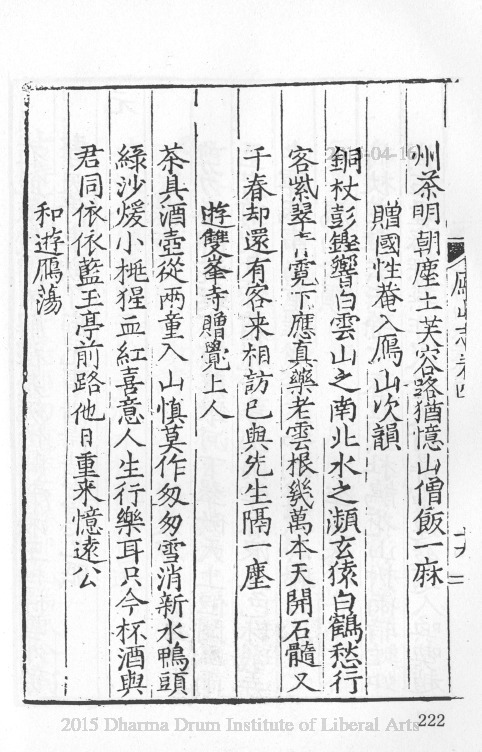 州茶明朝塵土芙容路猶憶山僧飯一麻
贈國性菴入鴈山次韻
銅杖彭鏗響白雲山之南北水之瀕玄猿白鶴愁行
客紫翠霓下應真藥老雲根幾萬本天開石髓又
千春却還有客来相訪已與先生隔塵
遊雙峯寺贈覺上人
茶具酒壺從兩童入山慎莫作匆匆雪消新水鴨頭
綠沙煖小桃猩血紅喜意人生行樂耳只今杯酒與
君同依依藍王亭前路他日重来憶遠公
和遊鴈蕩
鴈山志卷四
2015 Dharma Drum Institute of Liberal Arts
222